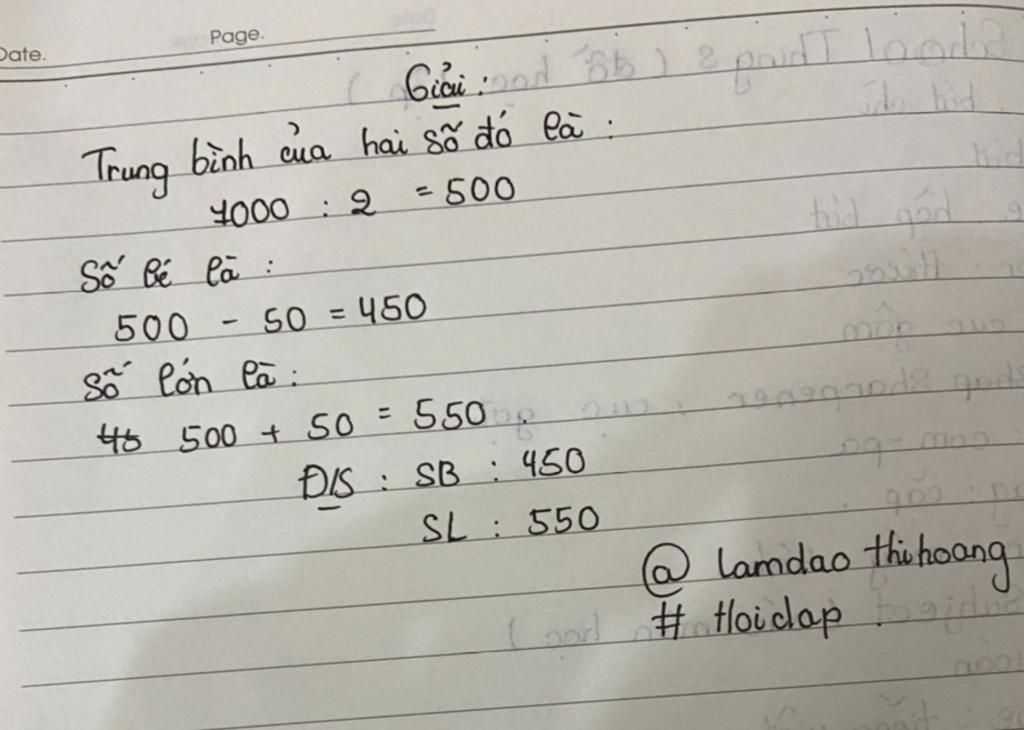 Date.
Page.
Giải :
Trung bình của hai số đó là :
1000 : 2 = 500
Số bé là :
500 - 50 = 450
Số lớn là :
45 500 + 50 = 550.
Đ/S : SB : 450
SL : 550
@ lamdao thihoang
# Hoidap